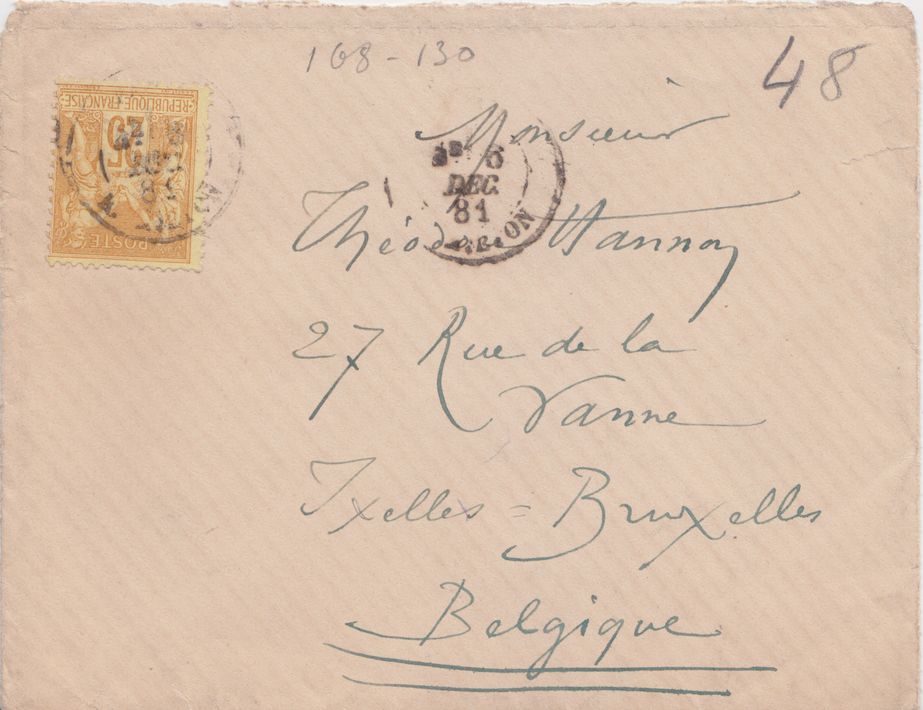 168-130
48
Monsieur
Théodore Hannon
27 Rue de la
Vanne
Ixelles = Bruxelles
Belgique
REPUBLIQUE FRANÇAISE
25
POSTE
DEC
81
6
DEC
81